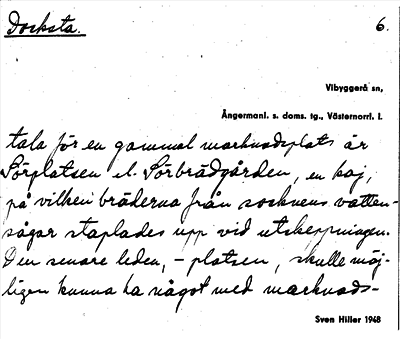 Docksta. 6.
Vibyggerå sn,
Ångermanl. s. doms. tg., Västernorrl. l.
tala för en gammal marknadsplats är
Sörplatsen el. Sörbrädgården, en kaj,
på vilken bräderna från socknens vatten-
sågar staplades upp vid utskeppningen.
Den senare leden, - platsen, skulle möj-
ligen kunna ha något med marknads-
Sven Hiller 1948